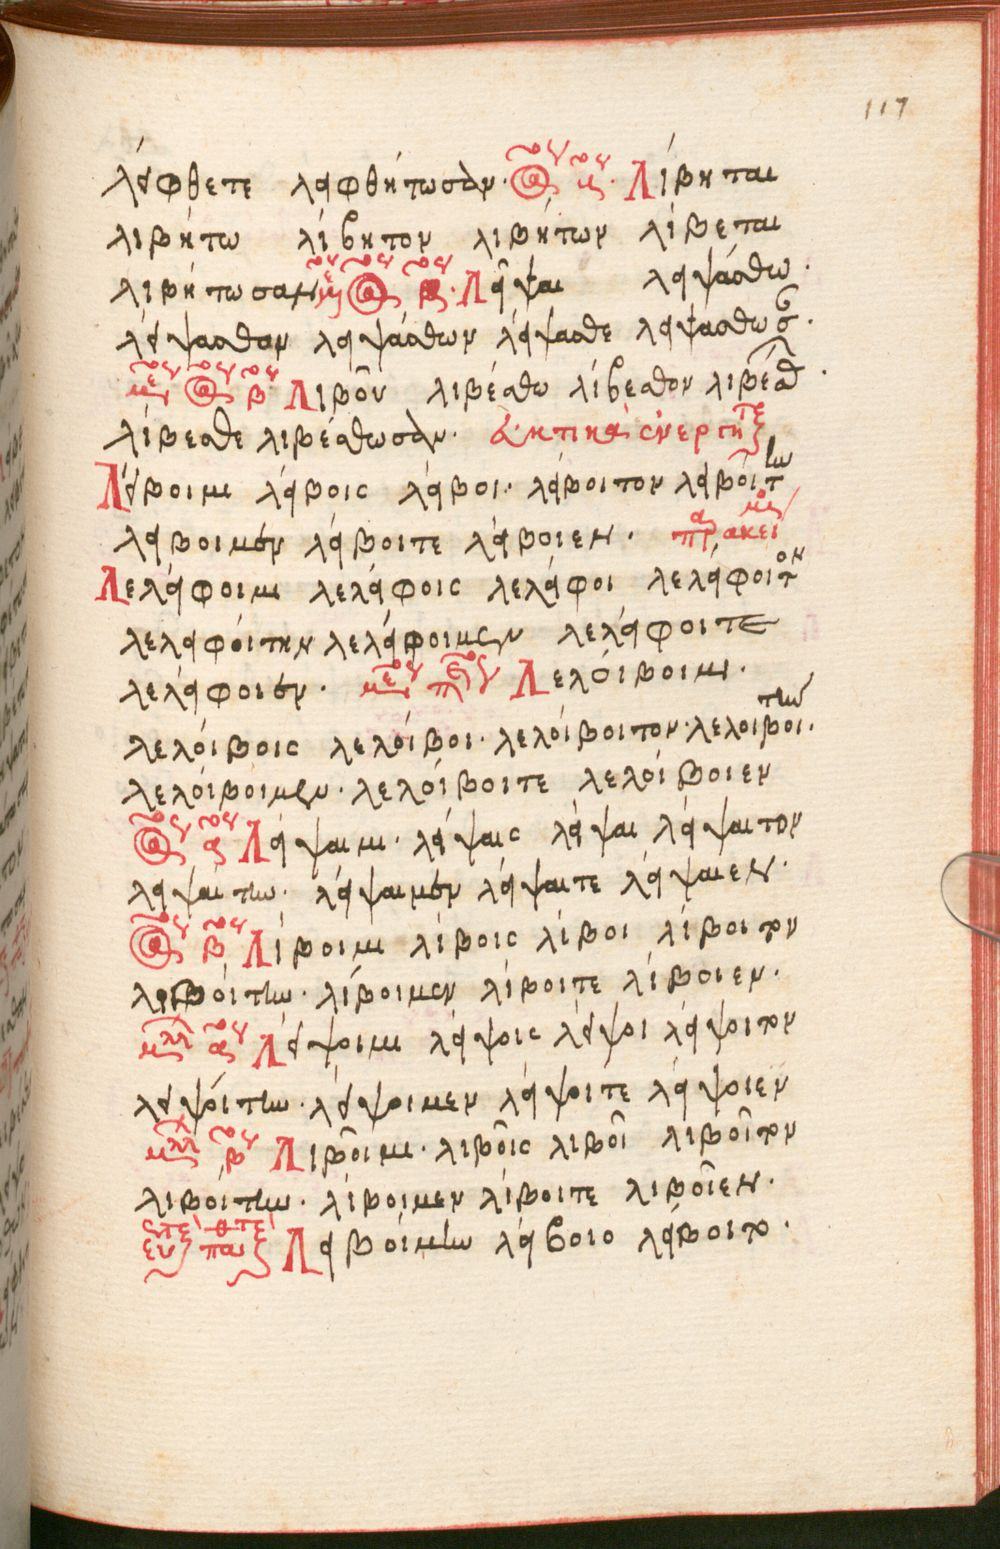 117
λείφθετε λειφθήτωσαν. Λίβηται
λιβήτω λίβητον λιβήτων λίβεται
λιβήτωσαν Λεῖψαι λειψάσθω.
λείψασθον λειψάσθων λείψασθε λειψάσθωσ.
Λιβοῦ λιβέσθω λίβεσθον λιβέσθ.
λίβεσθε λιβέσθωσαν. εὐκτικὰ ἐνεργητ
Λείβοιμι λείβοις λείβοι. λείβοιτον λειβοίτω
λείβοιμεν λείβοιτε λείβοιεν.
Λελείφοιμι λελείφοις λελείφοι λελείφοιτον
λελειφοίτην λελείφοιμεν λελείφοιτε
λελείφοιεν. Λελοίβοιμι.
λελοίβοις λελοίβοι. λελοίβοιτον. λελοιβοίτην.
λελοίβοιμεν. λελοίβοιτε λελοίβοιεν
Λείψαιμι. λείψαις λείψαι λείψαιτον
λειψαίτην. λείψαιμεν λείψαιτε λείψαιεν.
Λίβοιμι λίβοις λίβοι λίβοιτον
λιβοίτην. λίβοιμεν λίβοιτε λίβοιεν.
Λείψοιμι λείψοις λείψοι λείψοιτον
λειψοίτην. λείψοιμεν λείψοιτε λείψοιεν
Λιβοῖμι. λιβοῖς λιβοῖ λιβοῖτον
λιβοίτην. λίβοιμεν λίβοιτε λιβοῖεν.
Λειβοίμην λείβοιο λείβοιτο.